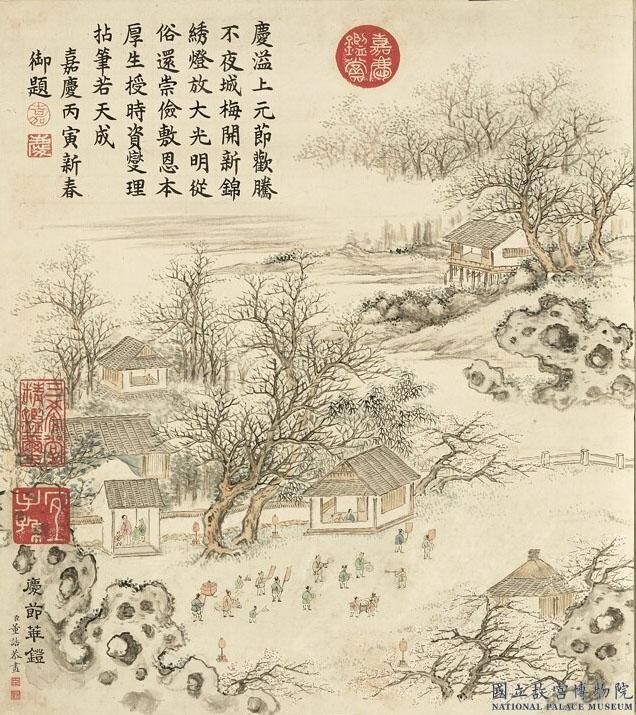 嘉慶鑑賞
慶溢上元節歡騰
不夜城梅開新錦
綉燈放大光明從
俗還崇儉敷恩本
厚生授時資燮理
拈筆若天成
嘉慶丙寅新春
御題
嘉
慶
三希堂精鑑璽
宜子孫
慶節華鐙
臣董誥恭畫
國立故宮博物院
NATIONAL PALACE MUSEUM